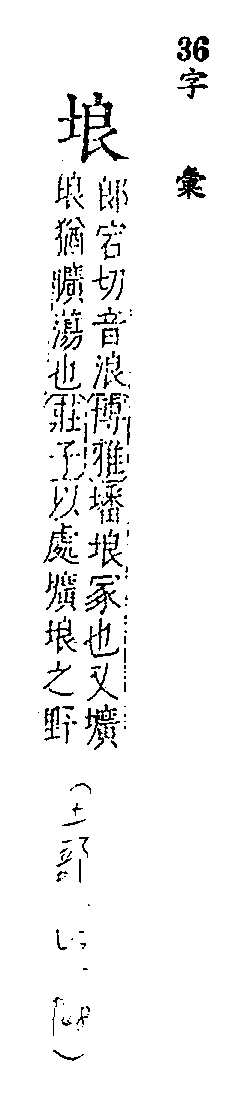 36字彙
埌
郎宕切音浪博雅墦埌冢也又壙
埌猶曠蕩也莊子以處壙埌之野
(土部